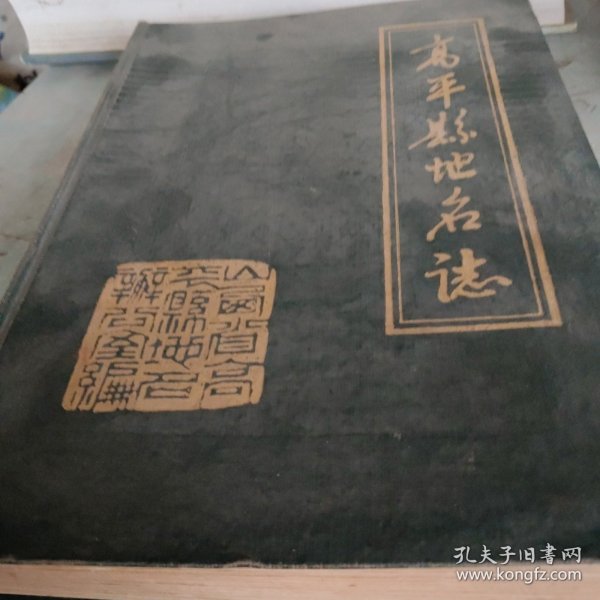 高平縣地名誌
山西省高
平縣地名
辦公室編
孔夫子旧書网
www.kongfz.com